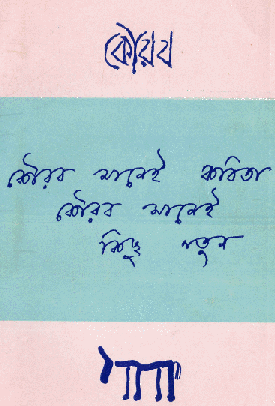 কৌরব
কৌরব মানেই কবিতা
কৌরব মানেই
কিছু নতুন